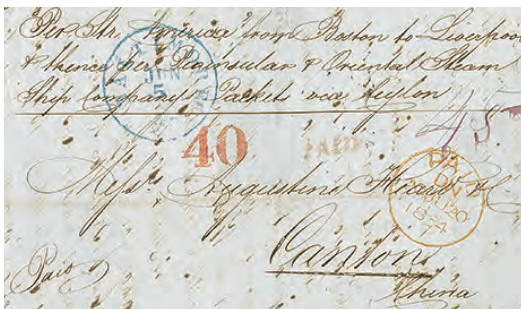 Per Str. America from Boston to Liverpool
& thence per Peninsular & Oriental Steam
Ship Company's Packets via Ceylon
BALTIMORE
JUN
5
40
PAID
45
PAID
1854
Messrs Augustine Heard & C
Canton
China
Paid